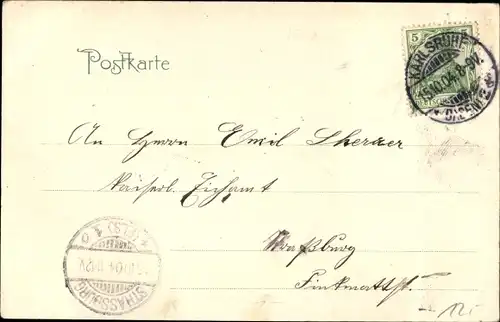 Postkarte
5 5
KARLSRUHE
15.10.04. 8-9V.
An Herrn Emil Scherrer
Kaiserl. Eichamt
Straßburg
Finkmattst.
STRASSBURG
(ELS)